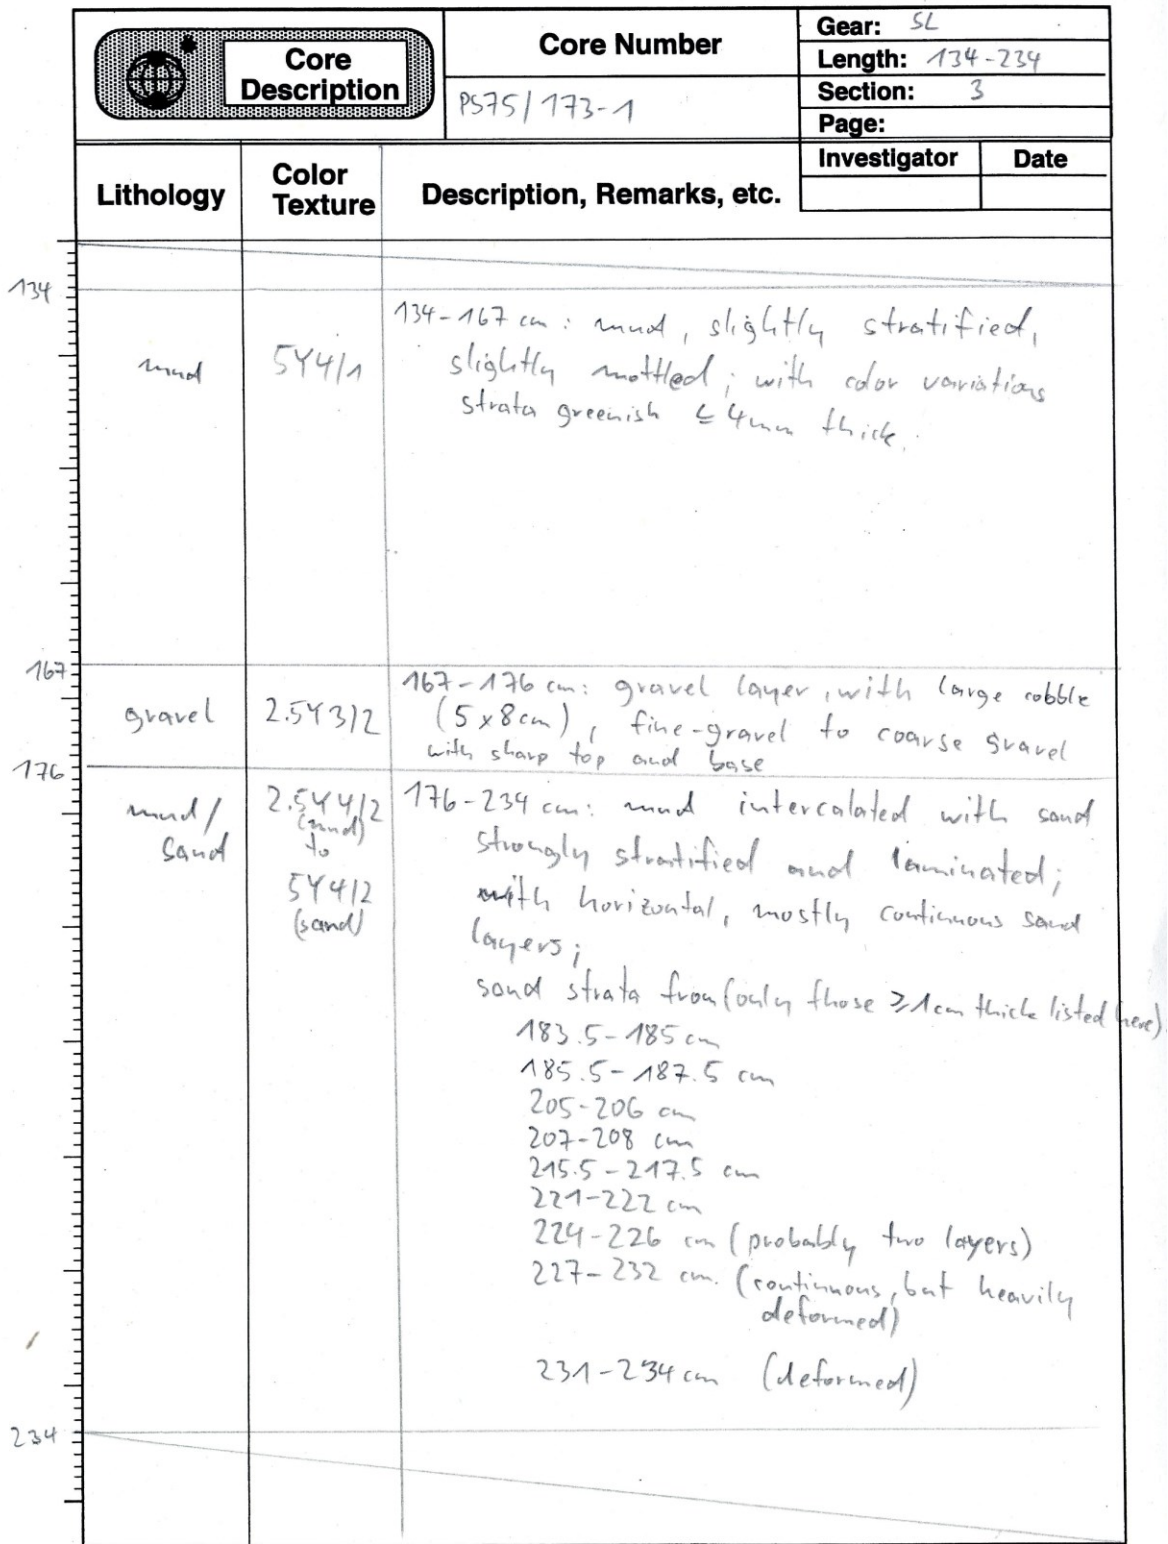 Core
Description
Core Number
PS75/173-1
Gear: SL
Length: 134-234
Section: 3
Page:
Investigator
Date
Lithology
Color
Texture
Description, Remarks, etc.
134
mud
5Y4/1
134-167 cm: mud, slightly stratified,
slightly mottled; with color variations
strata greenish ≤ 4mm thick.
167
gravel
2.5Y3/2
167-176 cm: gravel layer, with large cobble
(5 x 8cm), fine-gravel to coarse gravel
with sharp top and base
176
mud/
Sand
2.5Y4/2
(mud)
to
5Y4/2
(sand)
176-234 cm: mud intercalated with sand
strongly stratified and laminated;
with horizontal, mostly continuous sand
layers;
sand strata from (only those ≥1cm thick listed here)
183.5-185 cm
185.5-187.5 cm
205-206 cm
207-208 cm
215.5-217.5 cm
221-222 cm
224-226 cm (probably two layers)
227-232 cm. (continuous, but heavily
deformed)
231-234 cm (deformed)
234